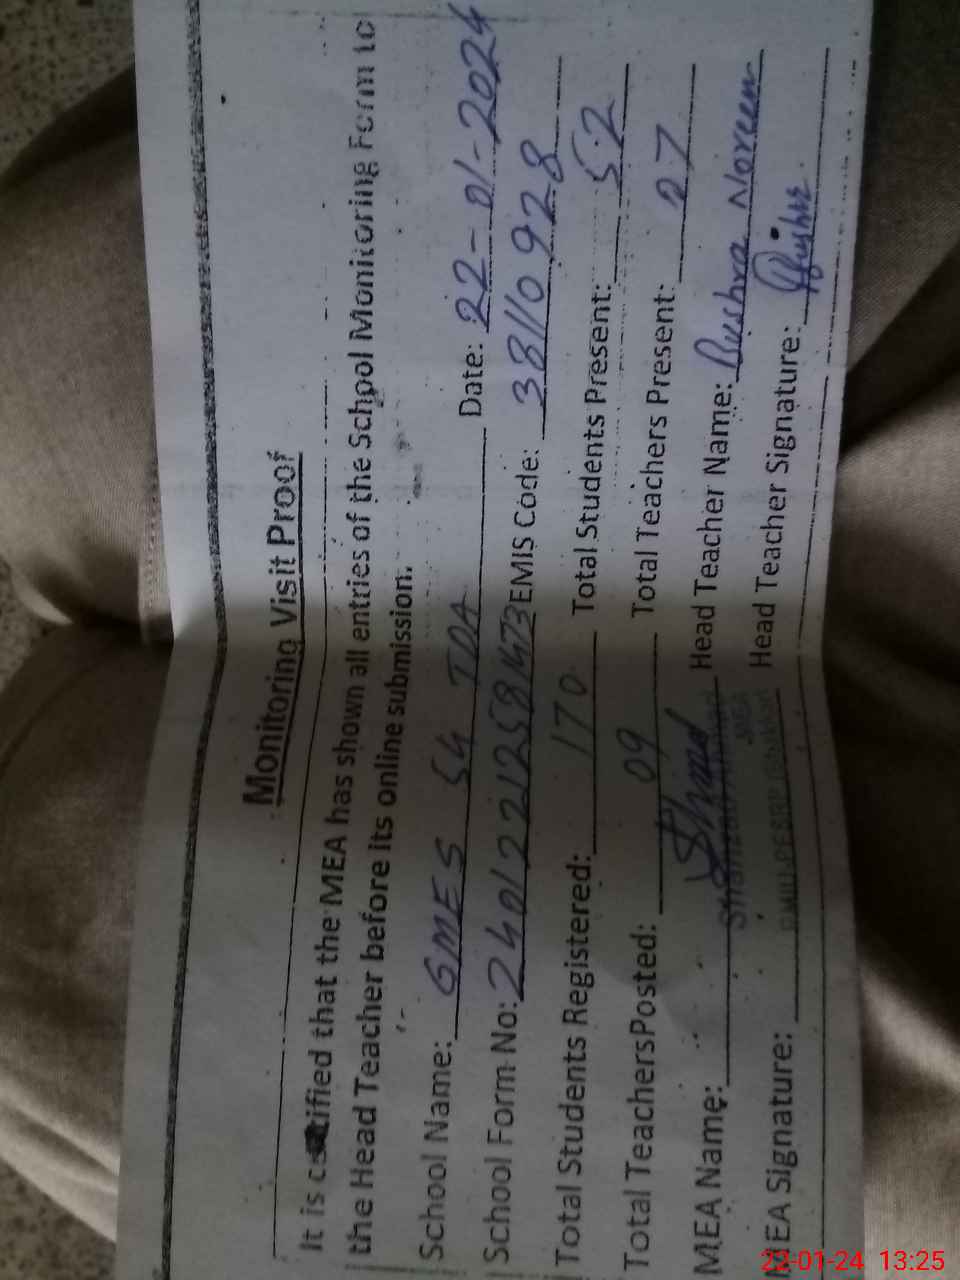 Monitoring Visit Proof
It is certified that the MEA has shown all entries of the School Monitoring Form to
the Head Teacher before its online submission.
School Name: GMES 54 TDA Date: 22-01-2024
School Form No: 2401221258473 EMIS Code: 38110928
Total Students Registered: 170 Total Students Present: 52
Total Teachers Posted: 09 Total Teachers Present: 07
MEA Name: Head Teacher Name: Bushra Noreen
MEA
MEA Signature: Head Teacher Signature: Bushra
22-01-24 13:25